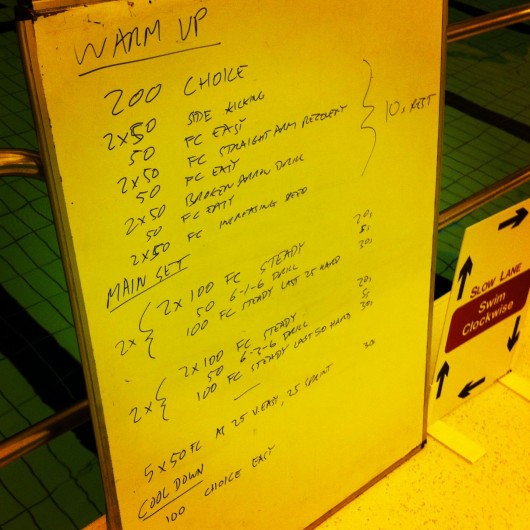 WARM UP
200 CHOICE
2x50 SIDE KICKING
50 FC EASY
2x50 FC STRAIGHT ARM RECOVERY
50 FC EASY
2x50 BROKEN ARROW DRILL
50 FC EASY
2x50 FC INCREASING SPEED
10, REST
MAIN SET
2x
2x100 FC STEADY 20,
50 6-1-6 DRILL 5,
100 FC STEADY LAST 25 HARD 30,
2x
2x100 FC STEADY 20,
50 6-3-6 DRILL 5,
100 FC STEADY LAST 50 HARD 30,
5x50 FC AS 25 V.EASY, 25 SPRINT 30
COOL DOWN
100 CHOICE EASY
SLOW LANE
Swim
Clockwise